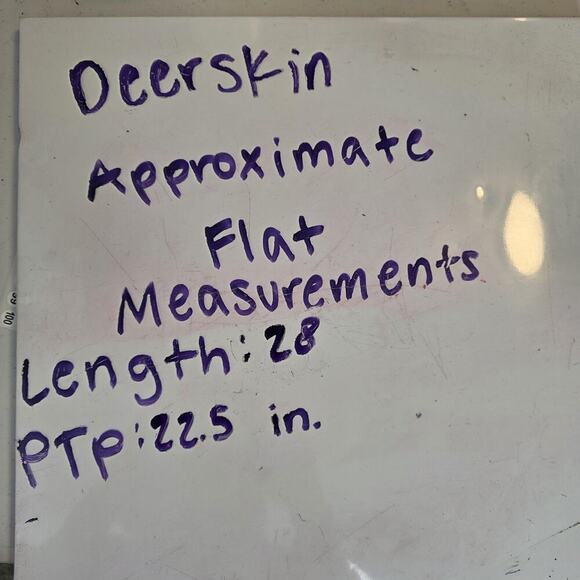 Deerskin
Approximate
Flat
Measurements
Length: 28
PTP: 22.5 in.
100